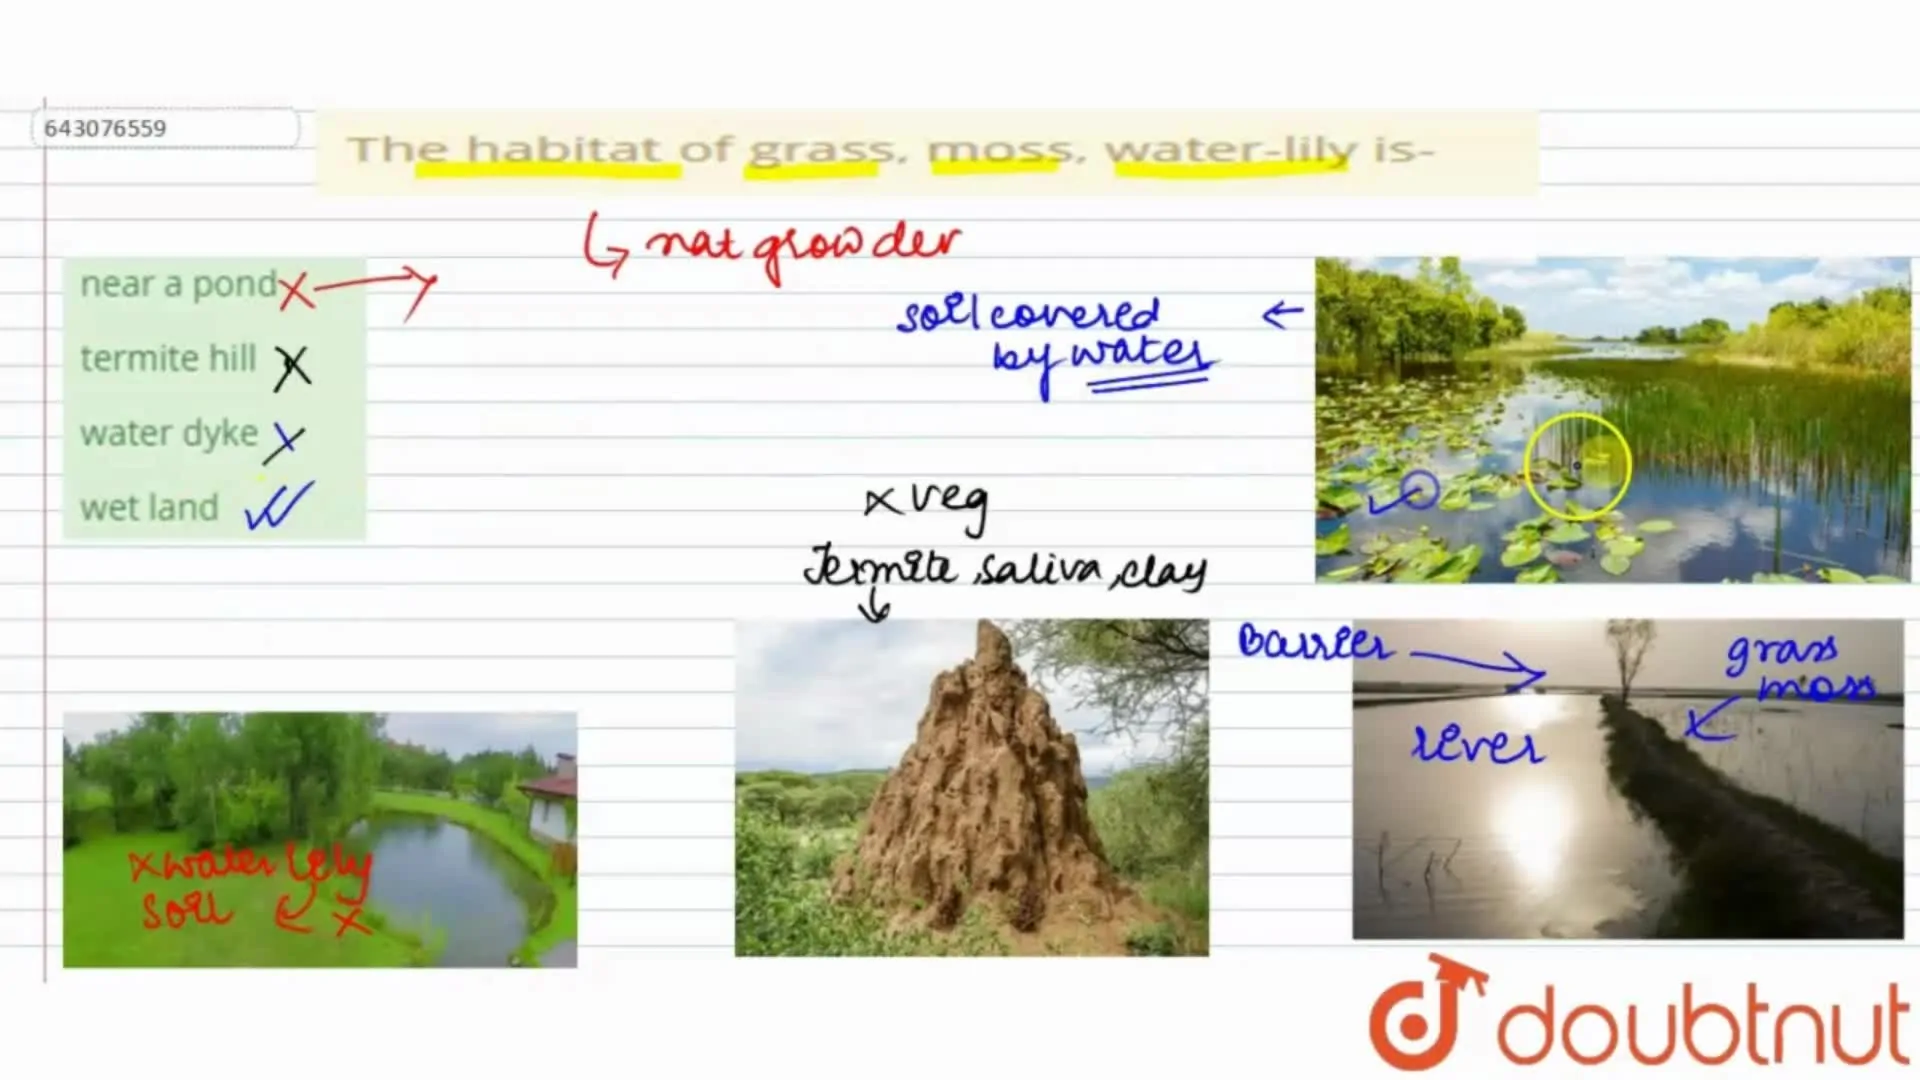 643076559
The habitat of grass, moss, water-lily is-
nat grow der
near a pond
soil covered
by water
termite hill
water dyke
wet land
x veg
Termite, saliva, clay
Barrier
grass
moss
rever
x water lely
soil
doubtnut